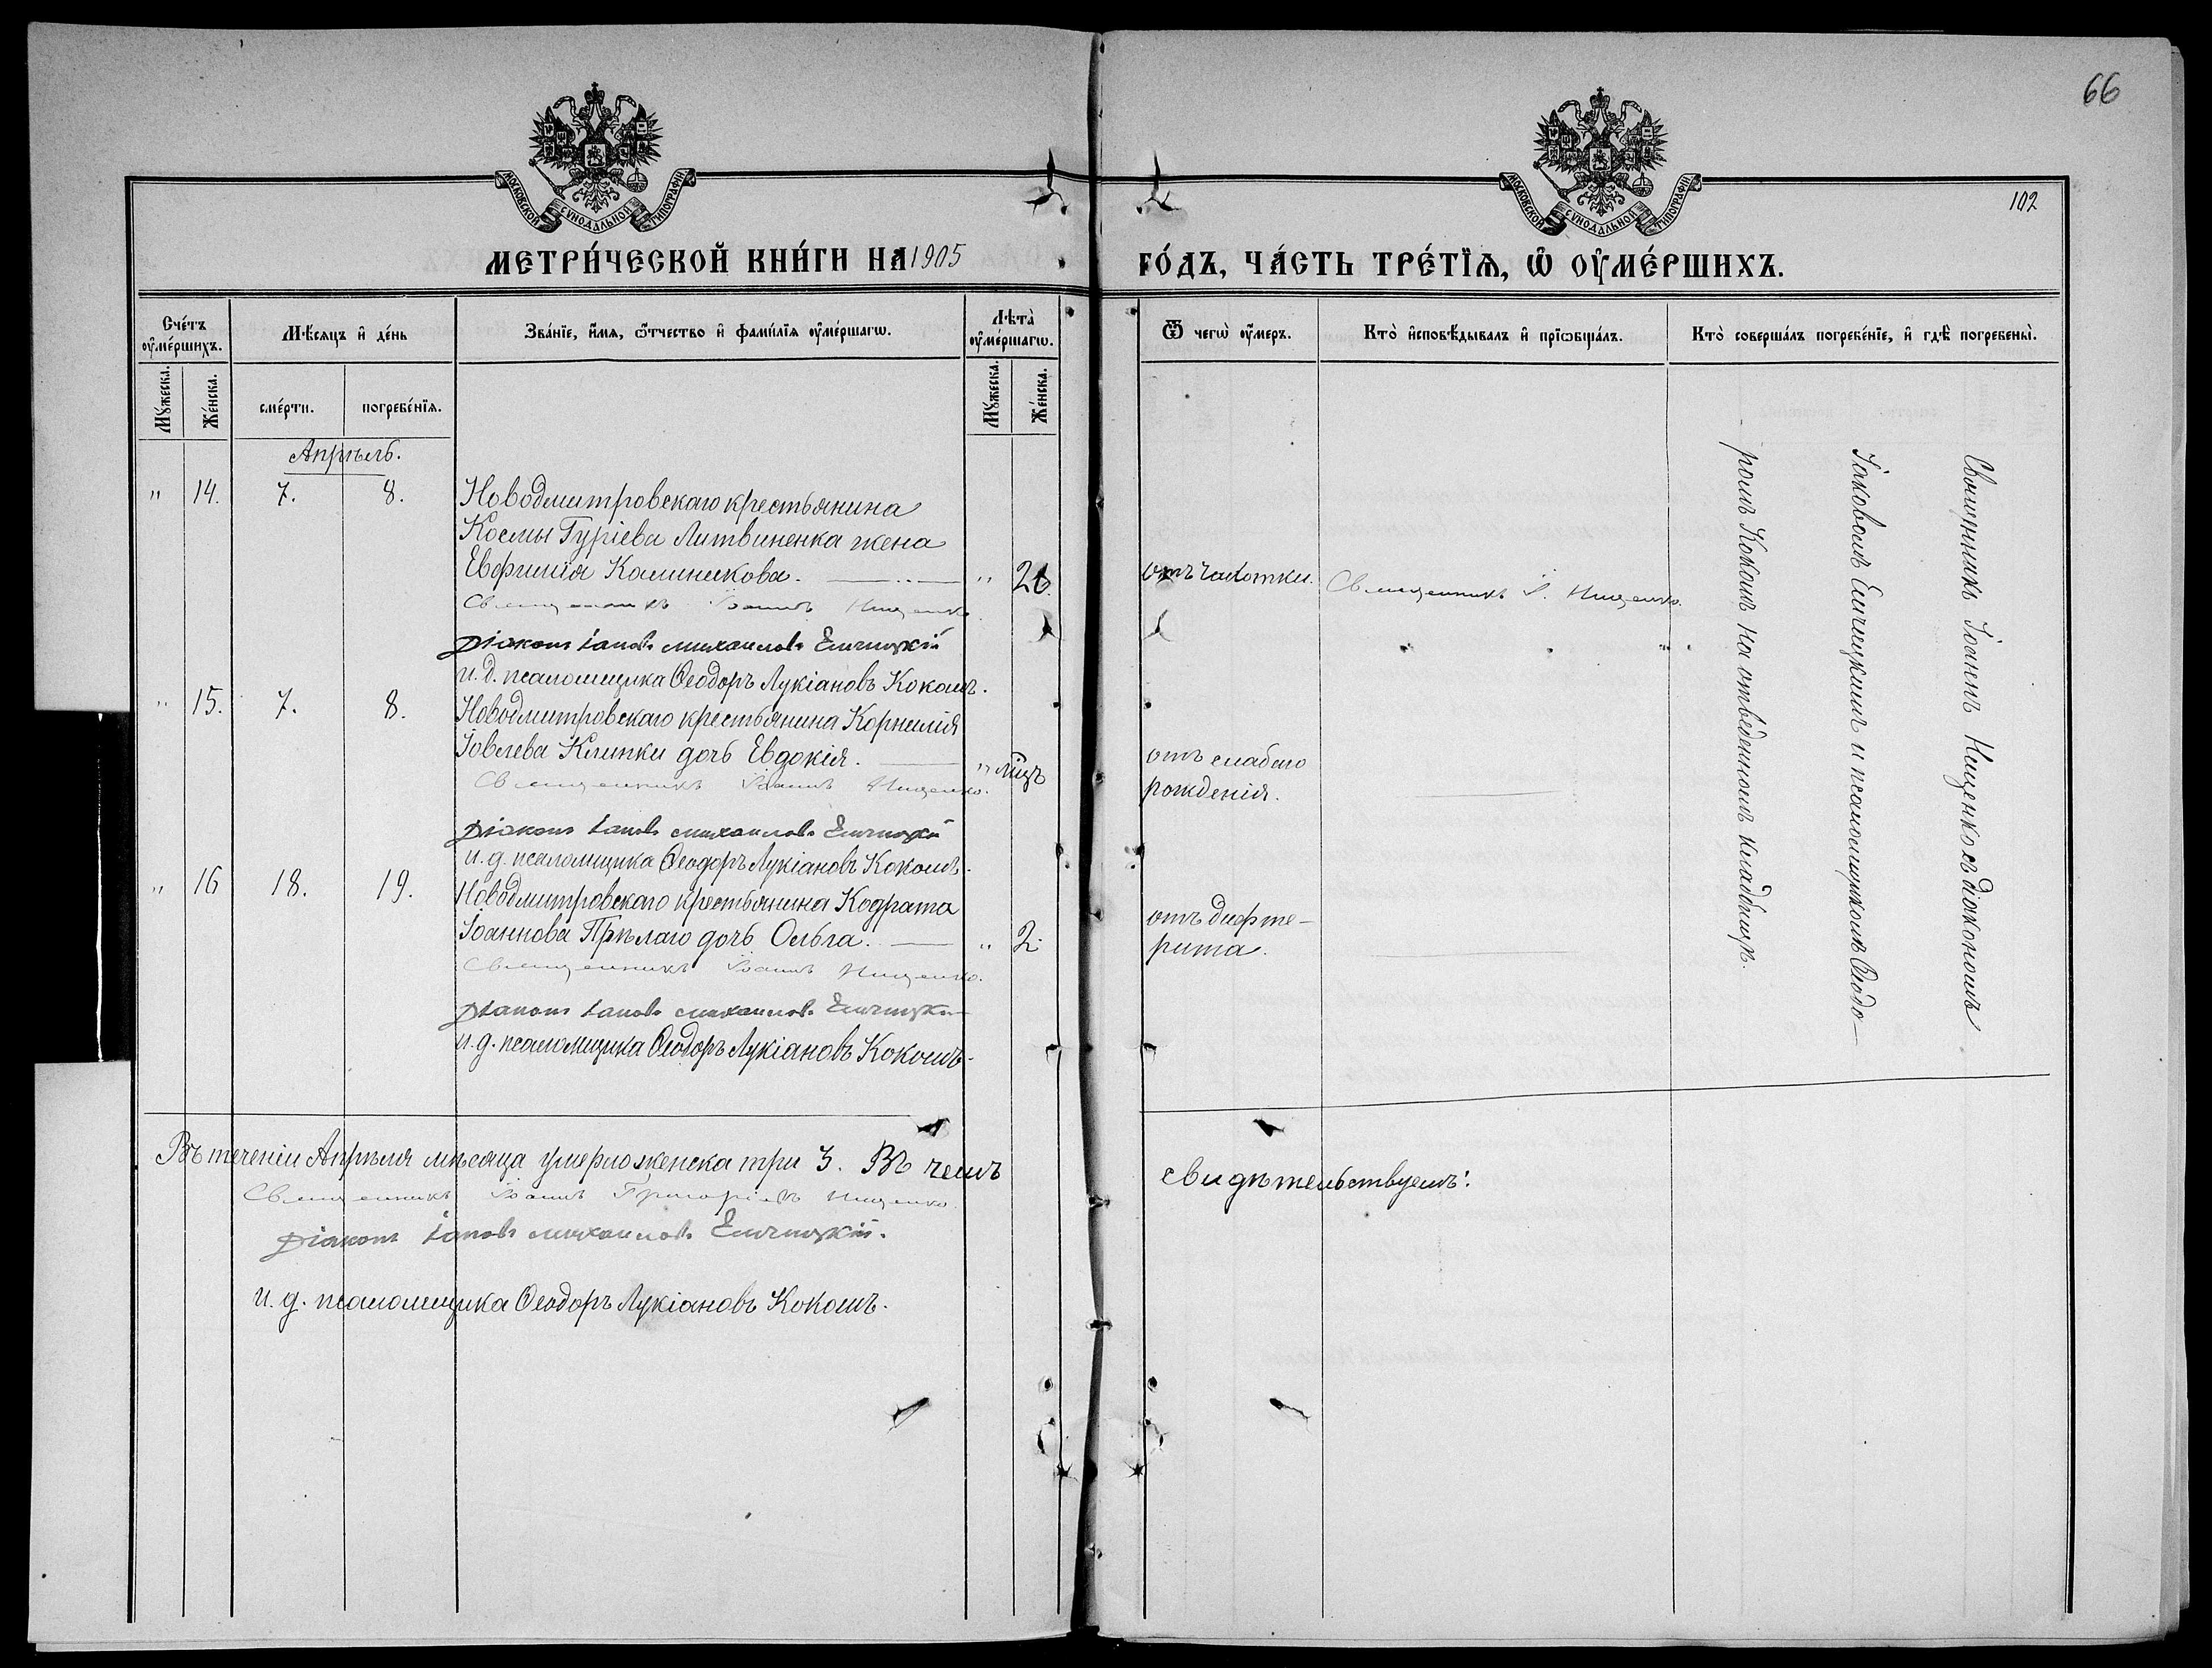 66
102
МОСКОВСКОЙ СѴНОДАЛЬНОЙ ТИПОГРАФІИ
МОСКОВСКОЙ СѴНОДАЛЬНОЙ ТИПОГРАФІИ
МЕТРИ́ЧЕСКОЙ КНИ́ГИ НА 1905
ГО́ДЪ, ЧА́СТЬ ТРЕ́ТЇѦ, Ѡ҆ ОУ҆МЕ́РШИХЪ.
Сче́тъ оу҆ме́ршихъ.
Мꙋ́жеска.
Же́нска.
Мѣ́сяцъ и҆ де́нь
сме́рти.
погребе́нїѧ.
Зва́нїе, и҆́мя, ѻ҆́тчество и҆ фами́лїѧ оу҆ме́ршагѡ.
Лѣ́та̀ оу҆ме́ршагѡ.
Мꙋ́жеска.
Же́нска.
Ѿ чегѡ̀ оу҆́меръ.
Кто̀ и҆сповѣ́дывалъ и҆ прїѡбща́лъ.
Кто̀ соверша́лъ погребе́нїе, и҆ гдѣ̀ погребены̀.
Апрѣль.
" 14. 7. 8. Новодмитровскаго крестьянина
Космы Гуріева Литвиненка жена
Евфимія Калинникова. " 26. отъ чахотки. Священникъ І. Нищенко.
Священникъ Іоаннъ Нищенко.
Діаконъ Іаковъ Михаиловъ Еличицкій
и. д. псаломщика Ѳеодоръ Лукіановъ Кокошъ.
" 15. 7. 8. Новодмитровскаго крестьянина Корнилія
Іовлева Клипки дочь Евдокія. " мѣц отъ слабаго
рожденія.
Священникъ Іоаннъ Нищенко.
Діаконъ Іаковъ Михаиловъ Еличицкій
и. д. псаломщика Ѳеодоръ Лукіановъ Кокошъ.
" 16 18. 19. Новодмитровскаго крестьянина Кодрата
Іоаннова Прѣлаго дочь Ольга. " 2. отъ дифте-
рита.
Священникъ Іоаннъ Нищенко.
Діаконъ Іаковъ Михаиловъ Еличицкій
и. д. псаломщика Ѳеодоръ Лукіановъ Кокошъ.
Священникъ Іоаннъ Нищенко съ діакономъ
Іаковомъ Еличицкимъ и псаломщикомъ Ѳеодо-
ромъ Кокошъ на отведенномъ кладбищѣ.
Въ теченіи Апрѣля мѣсяца умерло женска три 3. Въ чемъ
свидѣтельствуемъ:
Священникъ Іоаннъ Григоріевъ Нищенко.
Діаконъ Іаковъ Михаиловъ Еличицкій.
и. д. псаломщика Ѳеодоръ Лукіановъ Кокошъ.